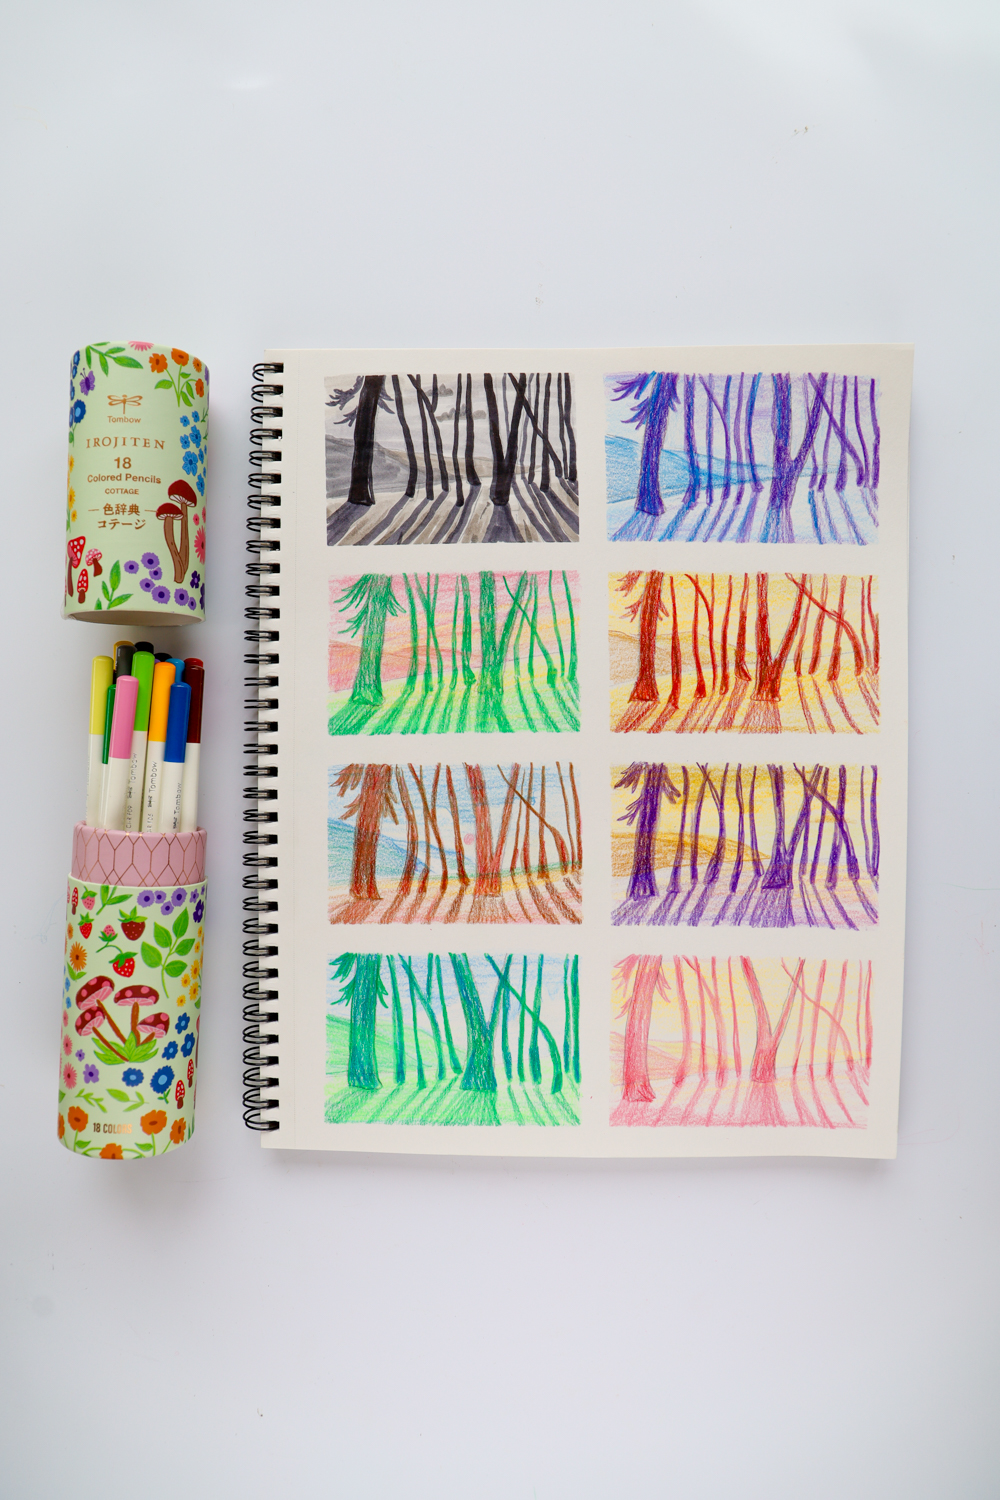 Tombow
IROJITEN
18
Colored Pencils
COTTAGE
色辞典
コテージ
Tombow
Tombow
Tombow
18 COLORS